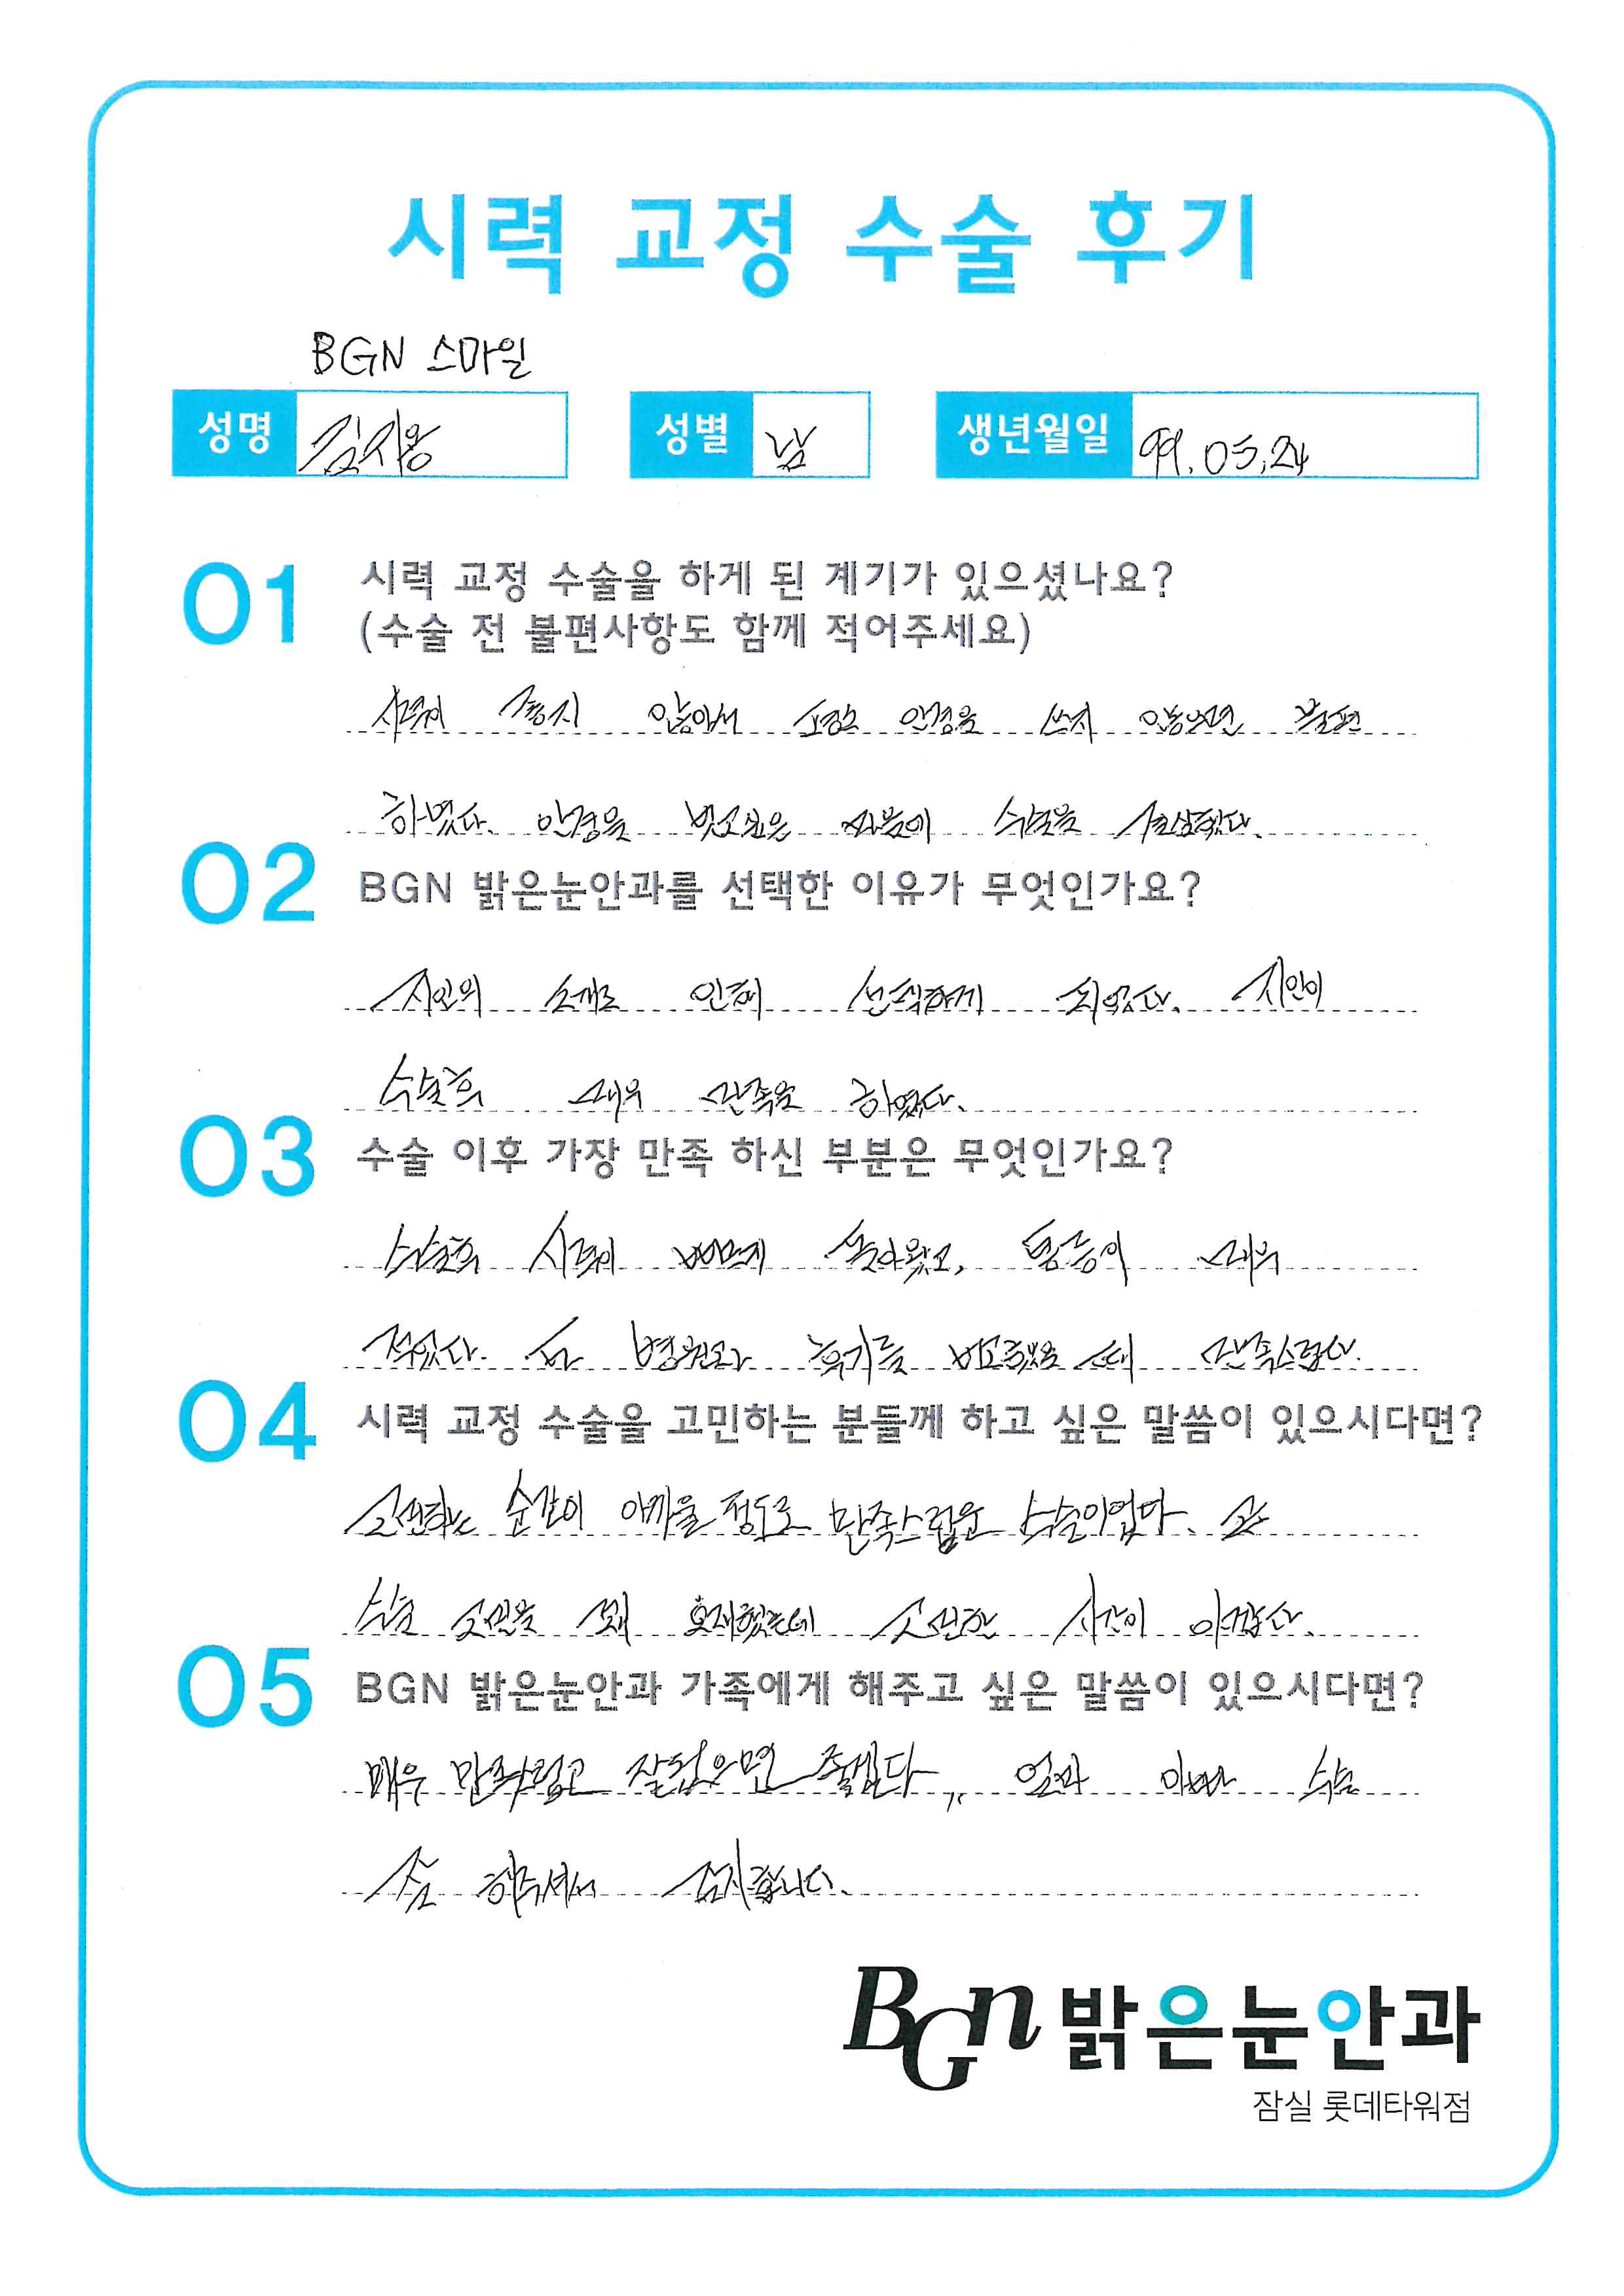 시력 교정 수술 후기
BGN 스마일
성명 김지용 성별 남 생년월일 99.05.24
01 시력 교정 수술을 하게 된 계기가 있으셨나요?
(수술 전 불편사항도 함께 적어주세요)
시력이 좋지 않아서 안경을 쓰지 않으면 불편
하였다. 안경을 벗고싶은 때문에 수술을
02 BGN 밝은눈안과를 선택한 이유가 무엇인가요?
지인의 소개로 인해 선택하게 되었다. 지인이
수술후 매우 만족을 하였다.
03 수술 이후 가장 만족 하신 부분은 무엇인가요?
수술후 시력이 빠르게 돌아왔고, 통증이 매우
적었다. 타 병원과 후기를 때 만족스럽다.
04 시력 교정 수술을 고민하는 분들께 하고 싶은 말씀이 있으시다면?
고민하는 순간이 아까울 정도로 만족스러운 수술이었다.
수술 고민을 꽤 고민한 시간이 아깝다.
05 BGN 밝은눈안과 가족에게 해주고 싶은 말씀이 있으시다면?
매우 만족스럽고 잘됐으면 좋겠다,, 엄마 아빠 수술
해주셔서 감사합니다.
BGn 밝은눈안과
잠실 롯데타워점